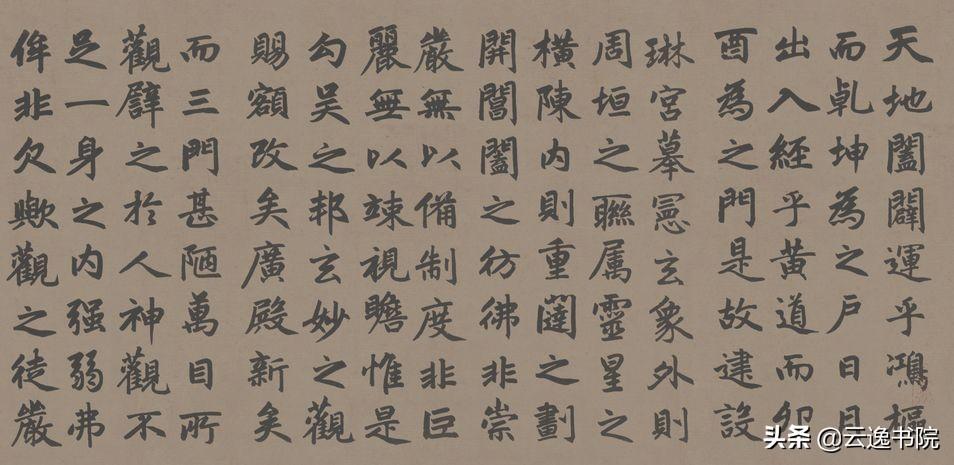 天地闔闢運乎鴻樞
而乹坤為之户日月
出入經乎黃道而卯
酉為之門是故建設
琳宮摹憲玄象外則
周垣之聮属靈星之
横陳内則重闥之劃
開閶闔之彷彿非崇
嚴無以備制度非巨
麗無以竦視瞻惟是
勾吴之邦玄妙之觀
賜額改矣廣殿新矣
而三門甚陋萬目所
觀譬之於人神觀不
足一身之内强弱弗
侔非欠歟觀之徒嚴
头条 @云逸书院